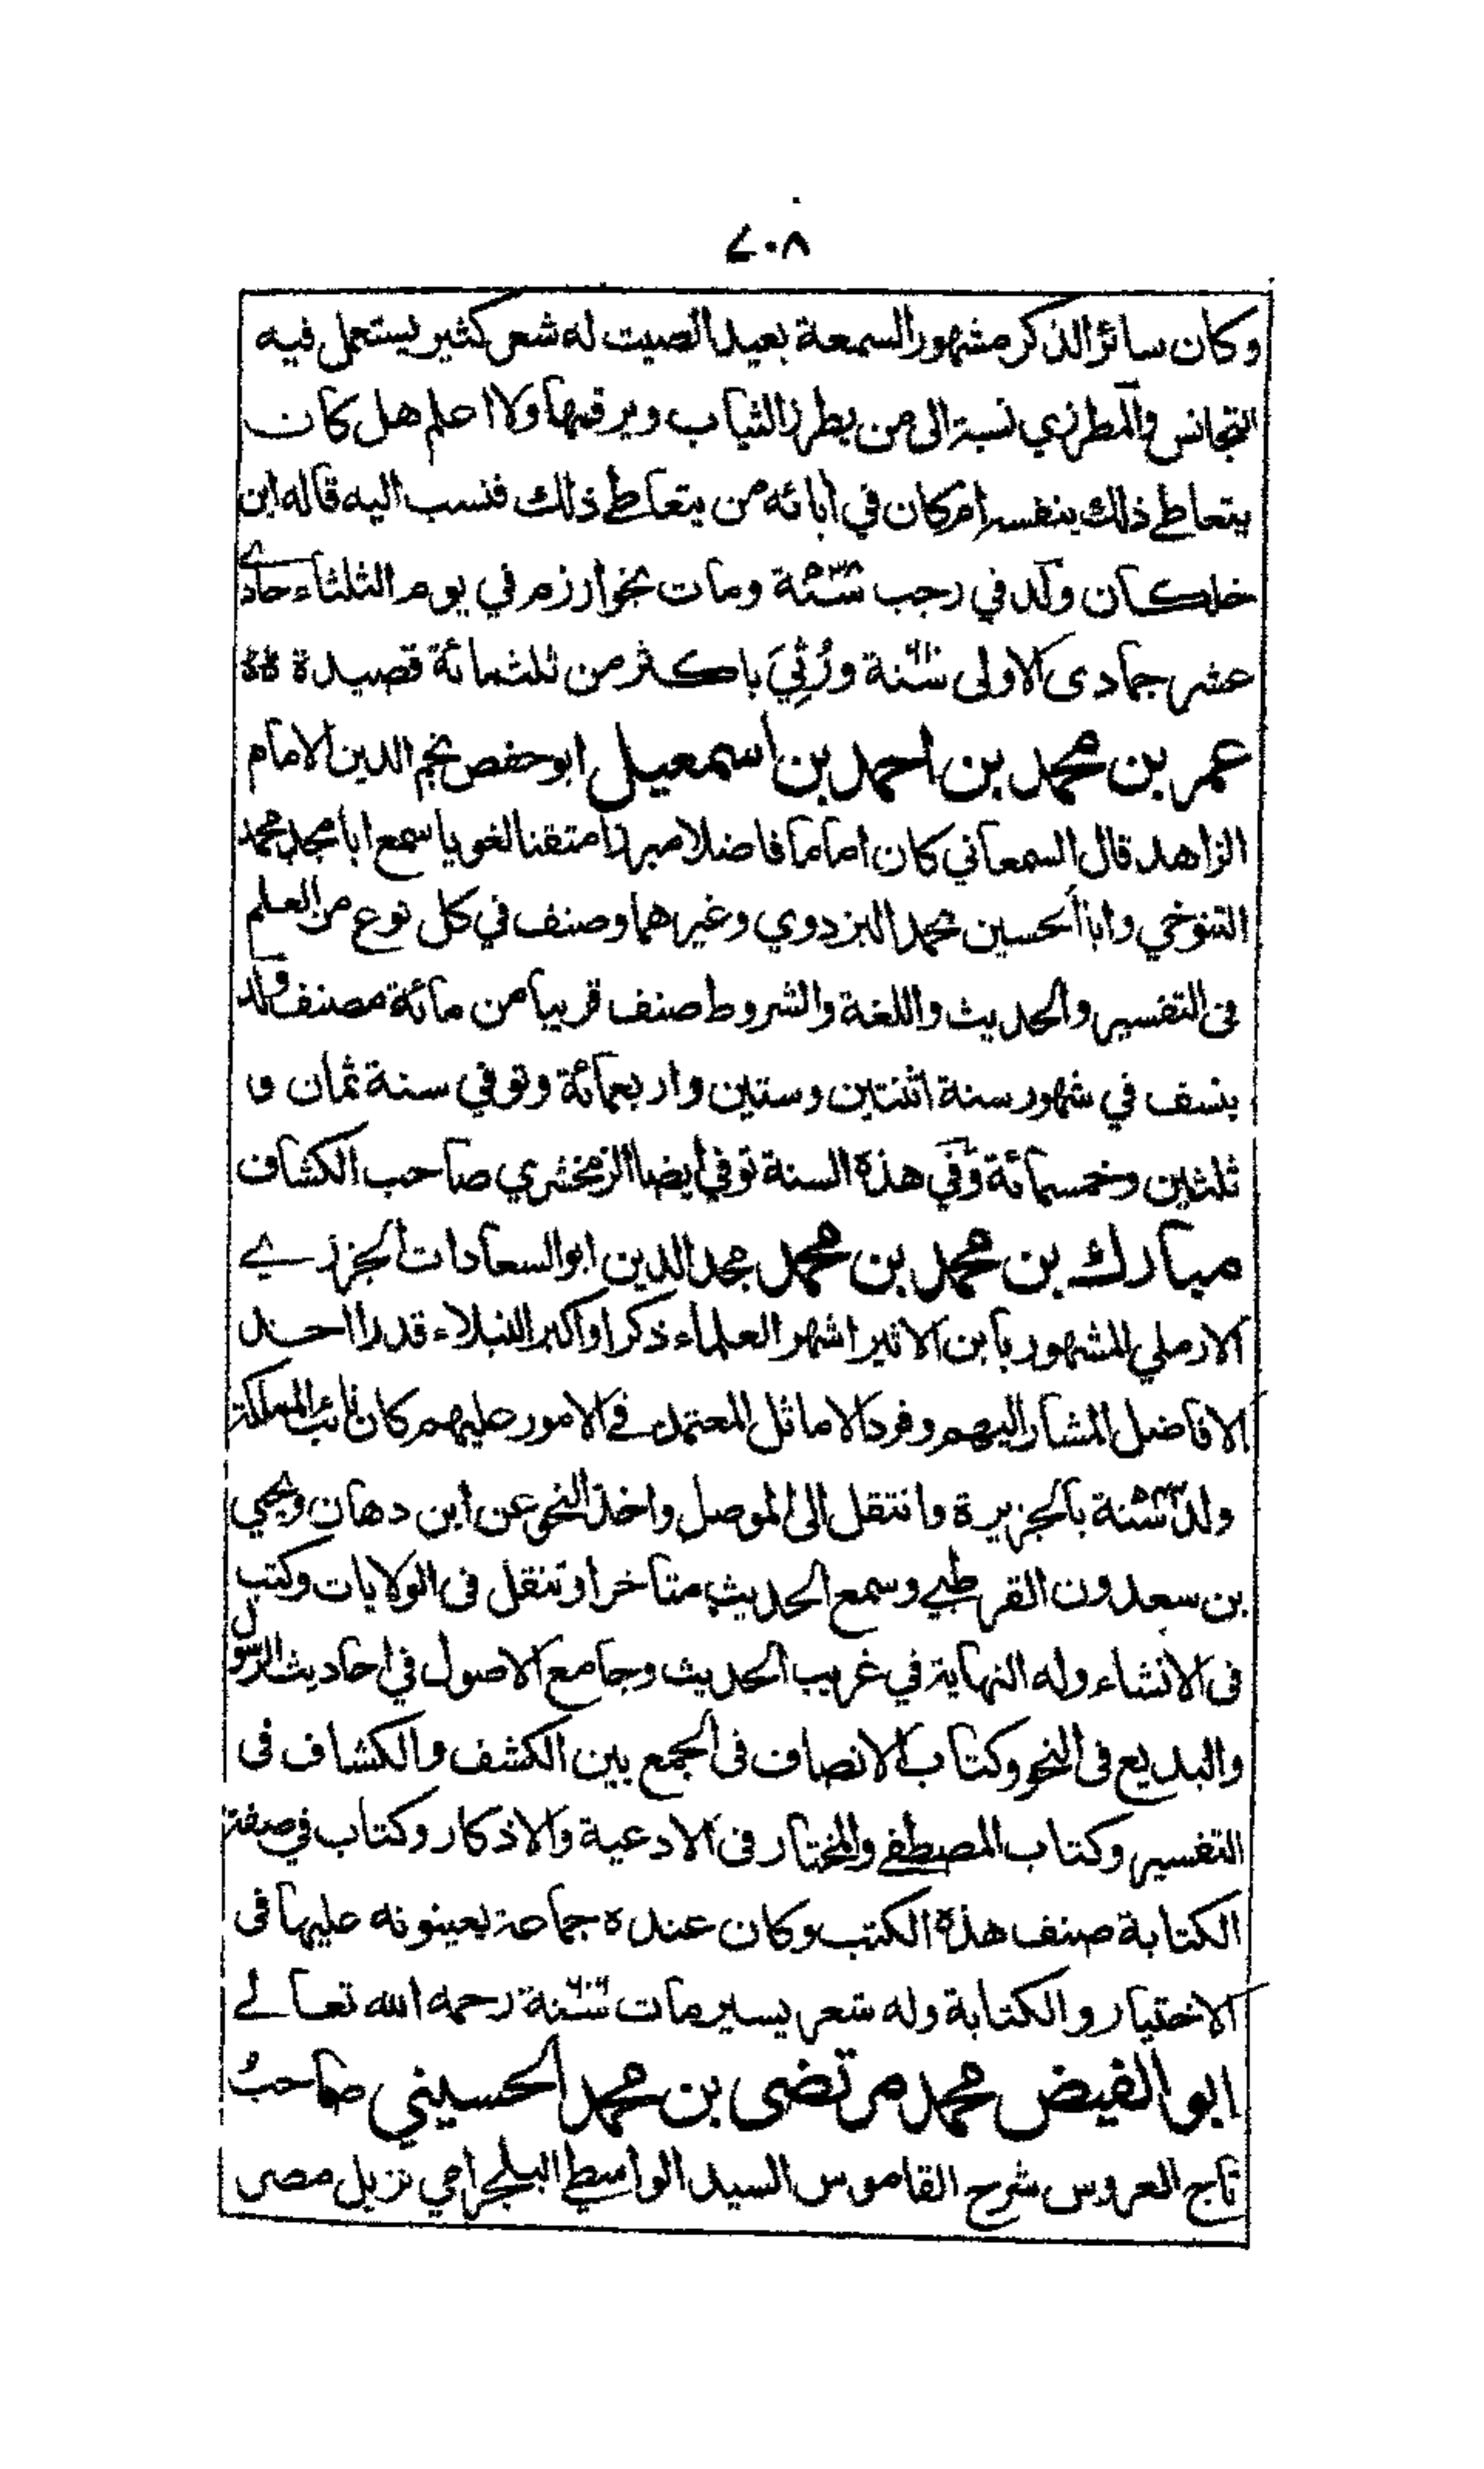 ٧٠٨
وكان سائر الذكر مشهور السمعة بعيد الصيت له شعر كثير يستعمل فيه
التجانس والمطرزي نسبة الى من يطرز الثياب ويرقمها ولا اعلم هل كان
يتعاطى ذلك بنفسه ام كان في ابائه من يتعاطى ذلك فنسب اليه قاله ابن
خلكان ولد في رجب سنة ومات بخوارزم في يوم الثلثاء حادى
عشر جمادى الاولى سنة ورُثِيَ باكثر من ثلثمائة قصيدة
عمر بن محمد بن احمد بن اسمعيل ابو حفص نجم الدين الامام
الزاهد قال السمعاني كان اماما فاضلا مبرزا متقنا لغويا سمع ابا محمد محمد
التنوخي وابا الحسين محمد البزدوي وغيرهما وصنف في كل نوع من العلم
فى التفسير والحديث واللغة والشروط صنف قريبا من مائة مصنف ولد
بنسف في شهور سنة اثنتين وستين واربعمائة وتوفي سنة ثمان و
ثلثين وخمسمائة وفي هذه السنة توفي ايضا الزمخشري صاحب الكشاف
مبارك بن محمد بن محمد مجد الدين ابو السعادات الجزري
الارملي المشهور بابن الاثير اشهر العلماء ذكرا واكبر النبلاء قدرا احد
الافاضل المشار اليهم وفرد الاماثل المعتمد في الامور عليهم كان نائب المملكة
ولد سنة بالجزيرة وانتقل الى الموصل واخذ النحو عن ابن دهان ويحيي
بن سعدون القرطبي وسمع الحديث متاخرا وتنقل فى الولايات وكتب
فى الانشاء وله النهاية في غريب الحديث وجامع الاصول في احاديث الرسول
والبديع فى النحو وكتاب الانصاف فى الجمع بين الكشف والكشاف فى
التفسير وكتاب المصطفى والمختار فى الادعية والاذكار وكتاب في صفة
الكتابة صنف هذه الكتب وكان عنده جماعة يعينونه عليها فى
الاختيار والكتابة وله شعر يسير مات سنة رحمه الله تعالى
ابو الفيض محمد مرتضى بن محمد الحسيني صاحبُ
تاج العروس شرح القاموس السيد الواسطي البلجرامي نزيل مصر